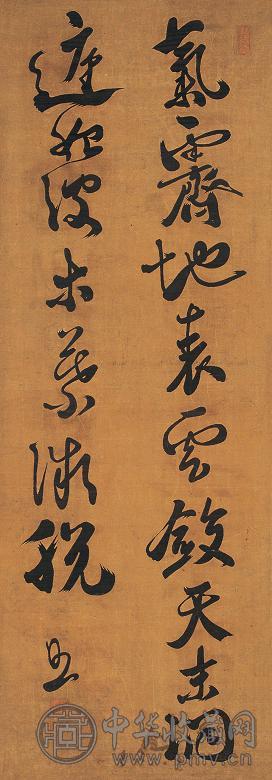 氣霽地表雲斂天末洞
庭始波木葉微脫
中华收藏网
www.pmv.cn